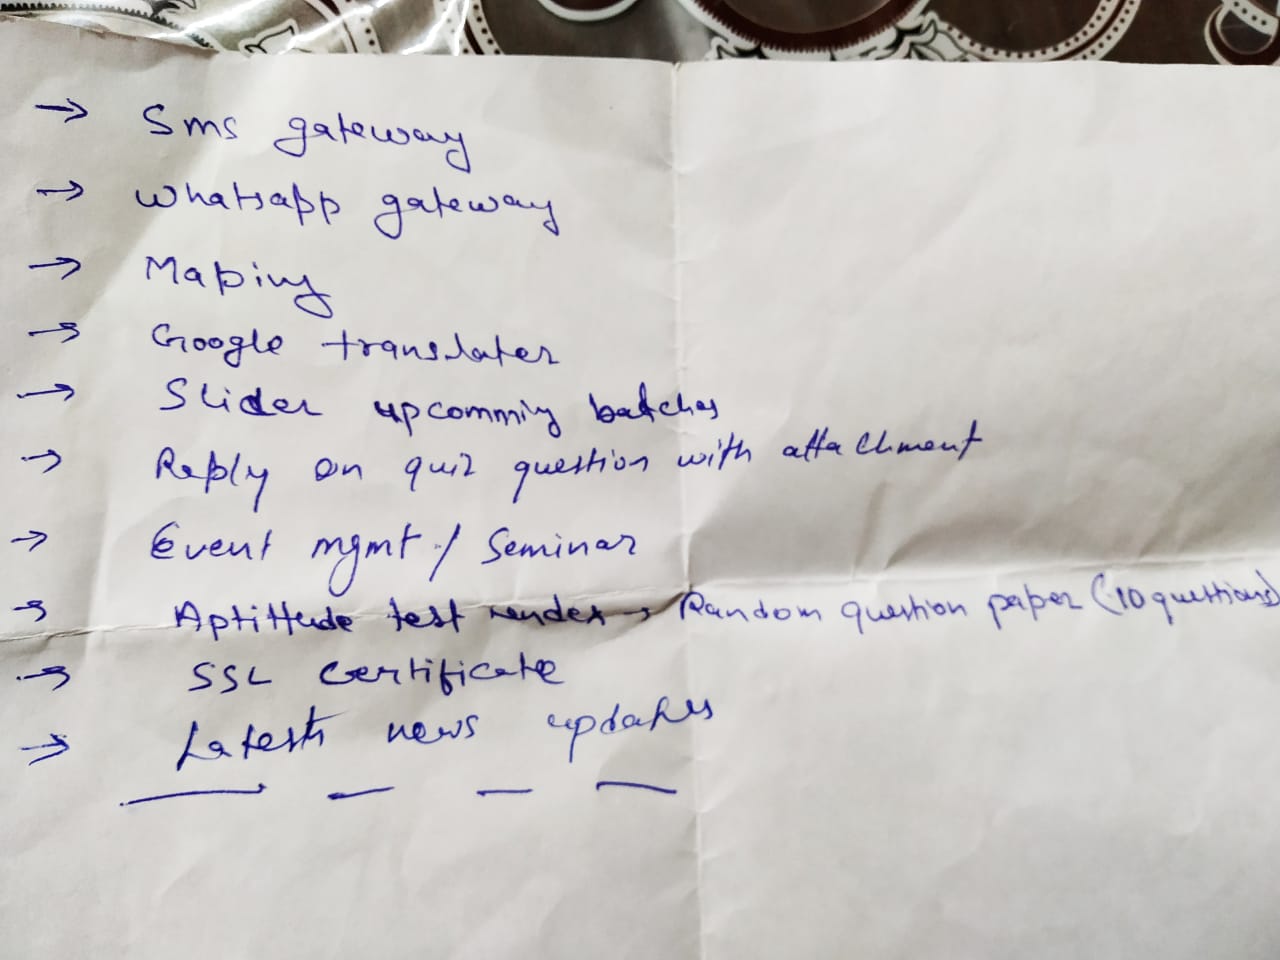 → Sms gateway
→ Whatsapp gateway
→ Maping
→ Google translater
→ Slider upcomming batches
→ Reply on quiz question with attachment
→ Event mgmt / Seminar
→ Aptittude test → Random question paper (10 questions)
→ SSL certificate
→ Latest news updates